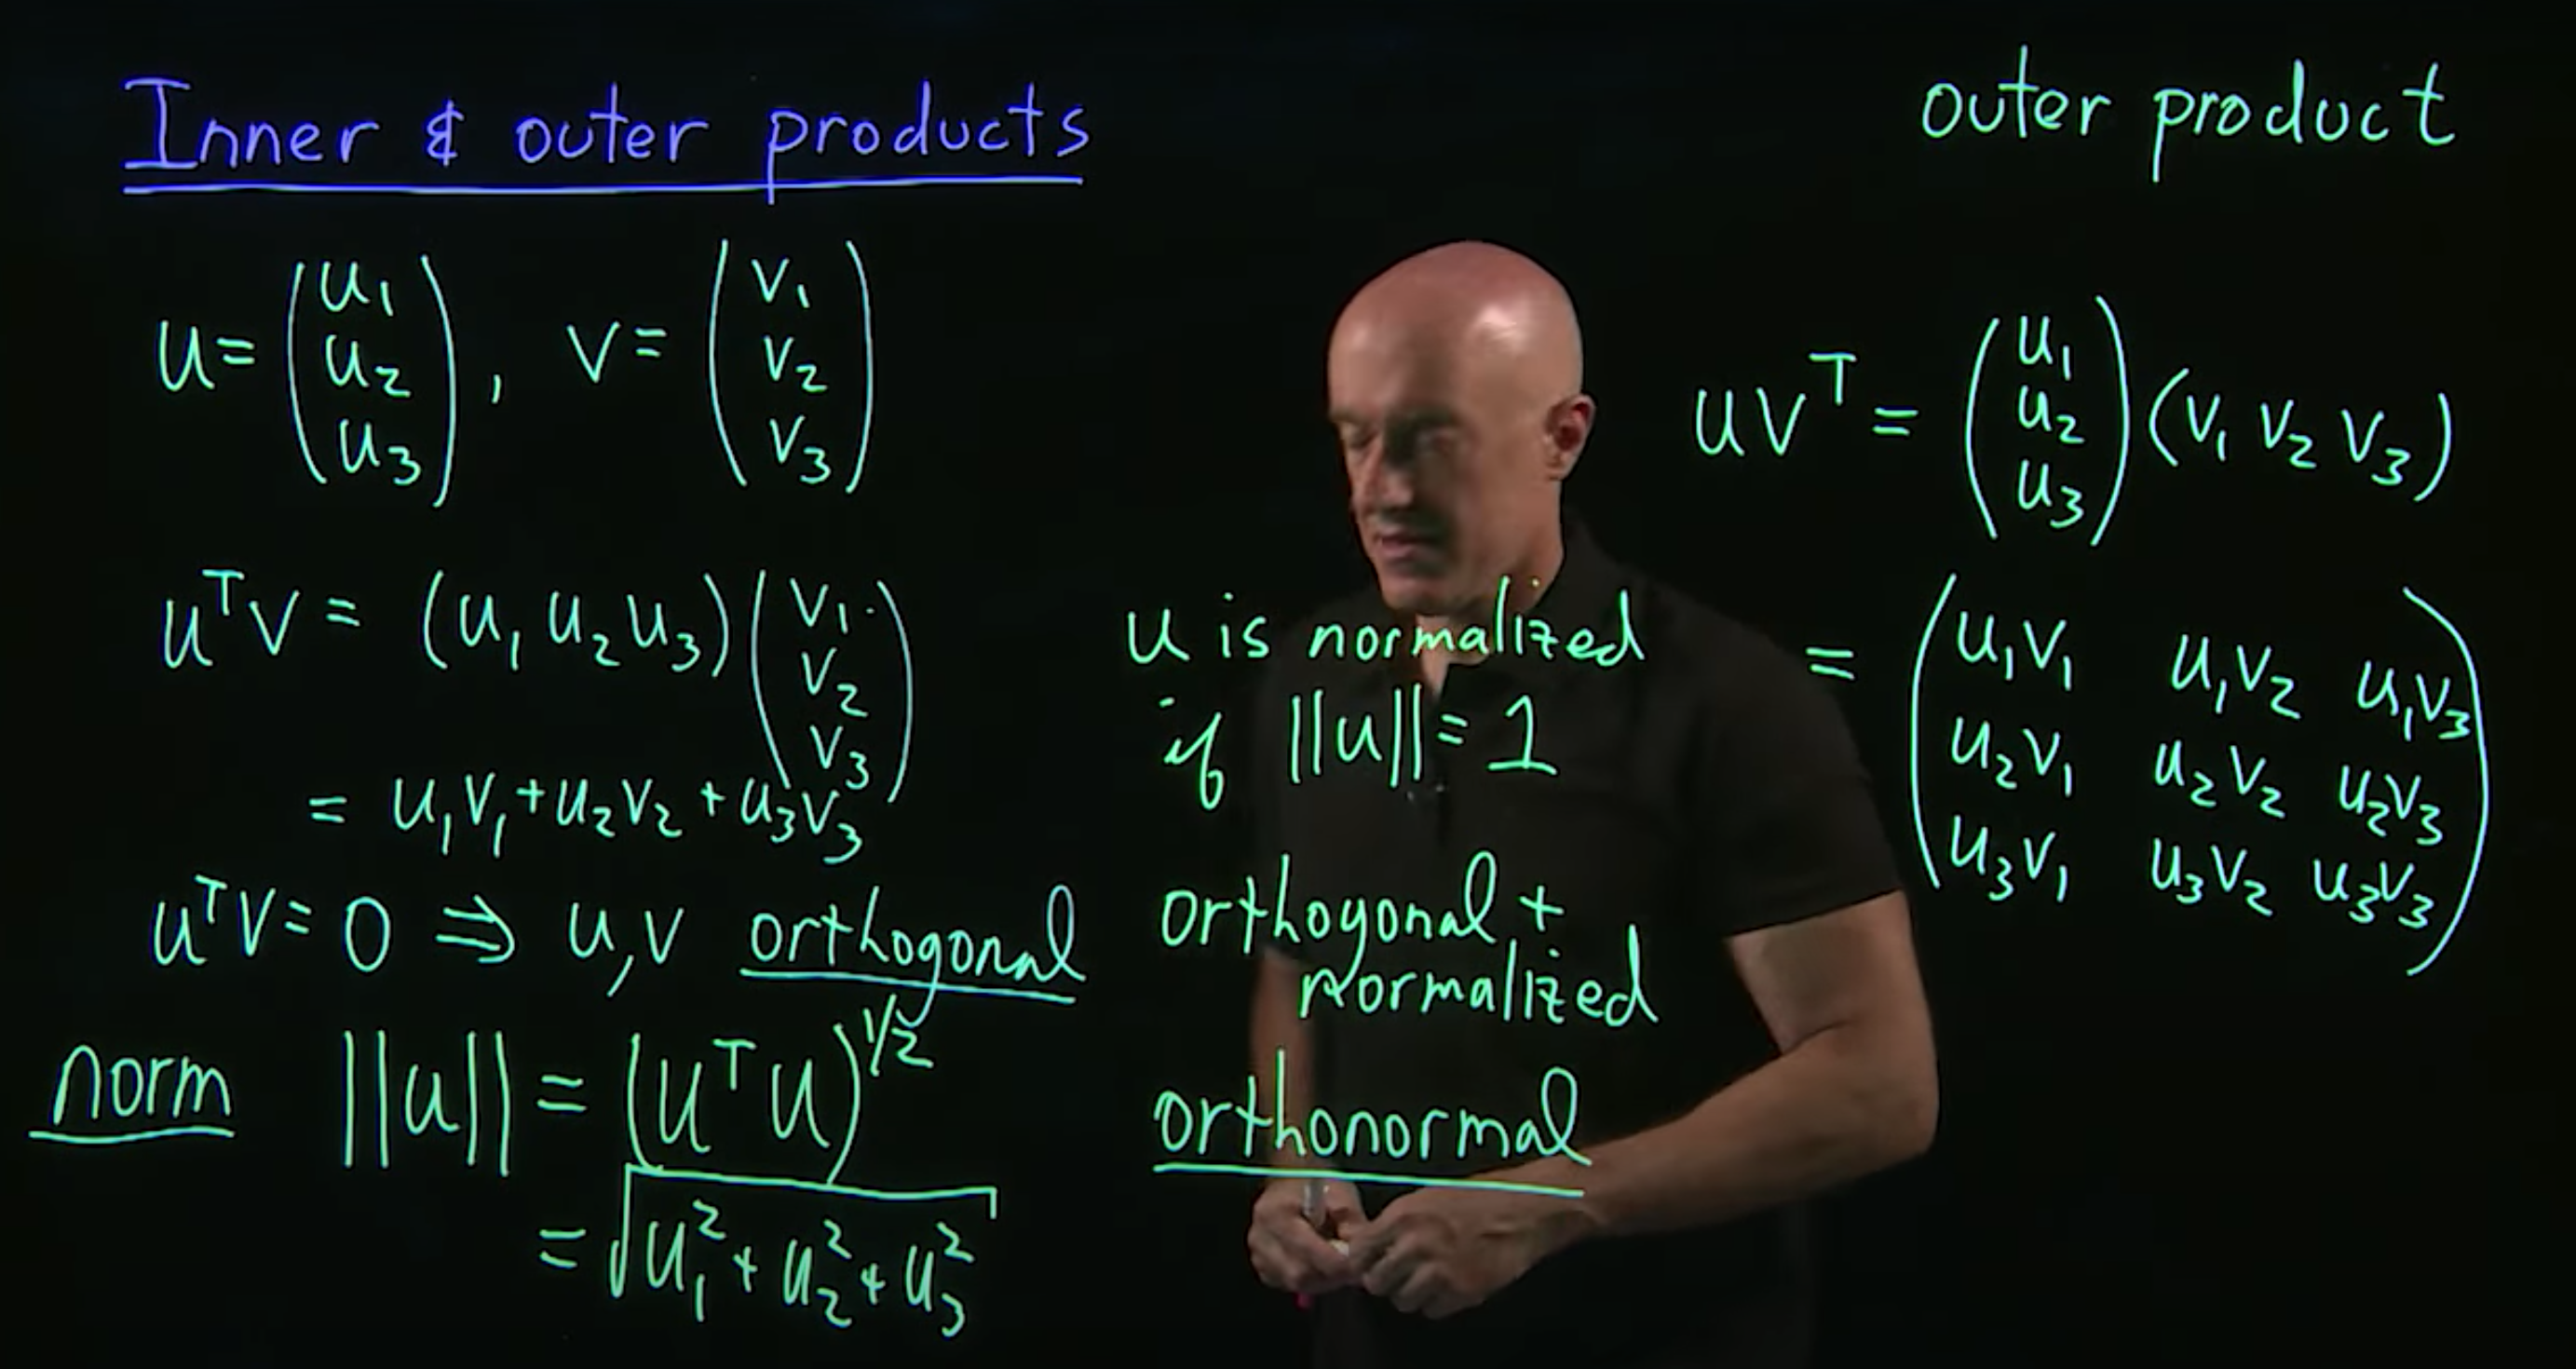 Inner & outer products
u = (u₁ u₂ u₃), v = (v₁ v₂ v₃)
uᵀv = (u₁ u₂ u₃)(v₁ v₂ v₃)
= u₁v₁ + u₂v₂ + u₃v₃
uᵀv = 0 ⇒ u,v orthogonal
norm ||u|| = (uᵀu)^1/2
= √u₁² + u₂² + u₃²
u is normalized
if ||u|| = 1
orthogonal +
normalized
orthonormal
outer product
uvᵀ = (u₁ u₂ u₃)(v₁ v₂ v₃)
= (u₁v₁ u₁v₂ u₁v₃
u₂v₁ u₂v₂ u₂v₃
u₃v₁ u₃v₂ u₃v₃)